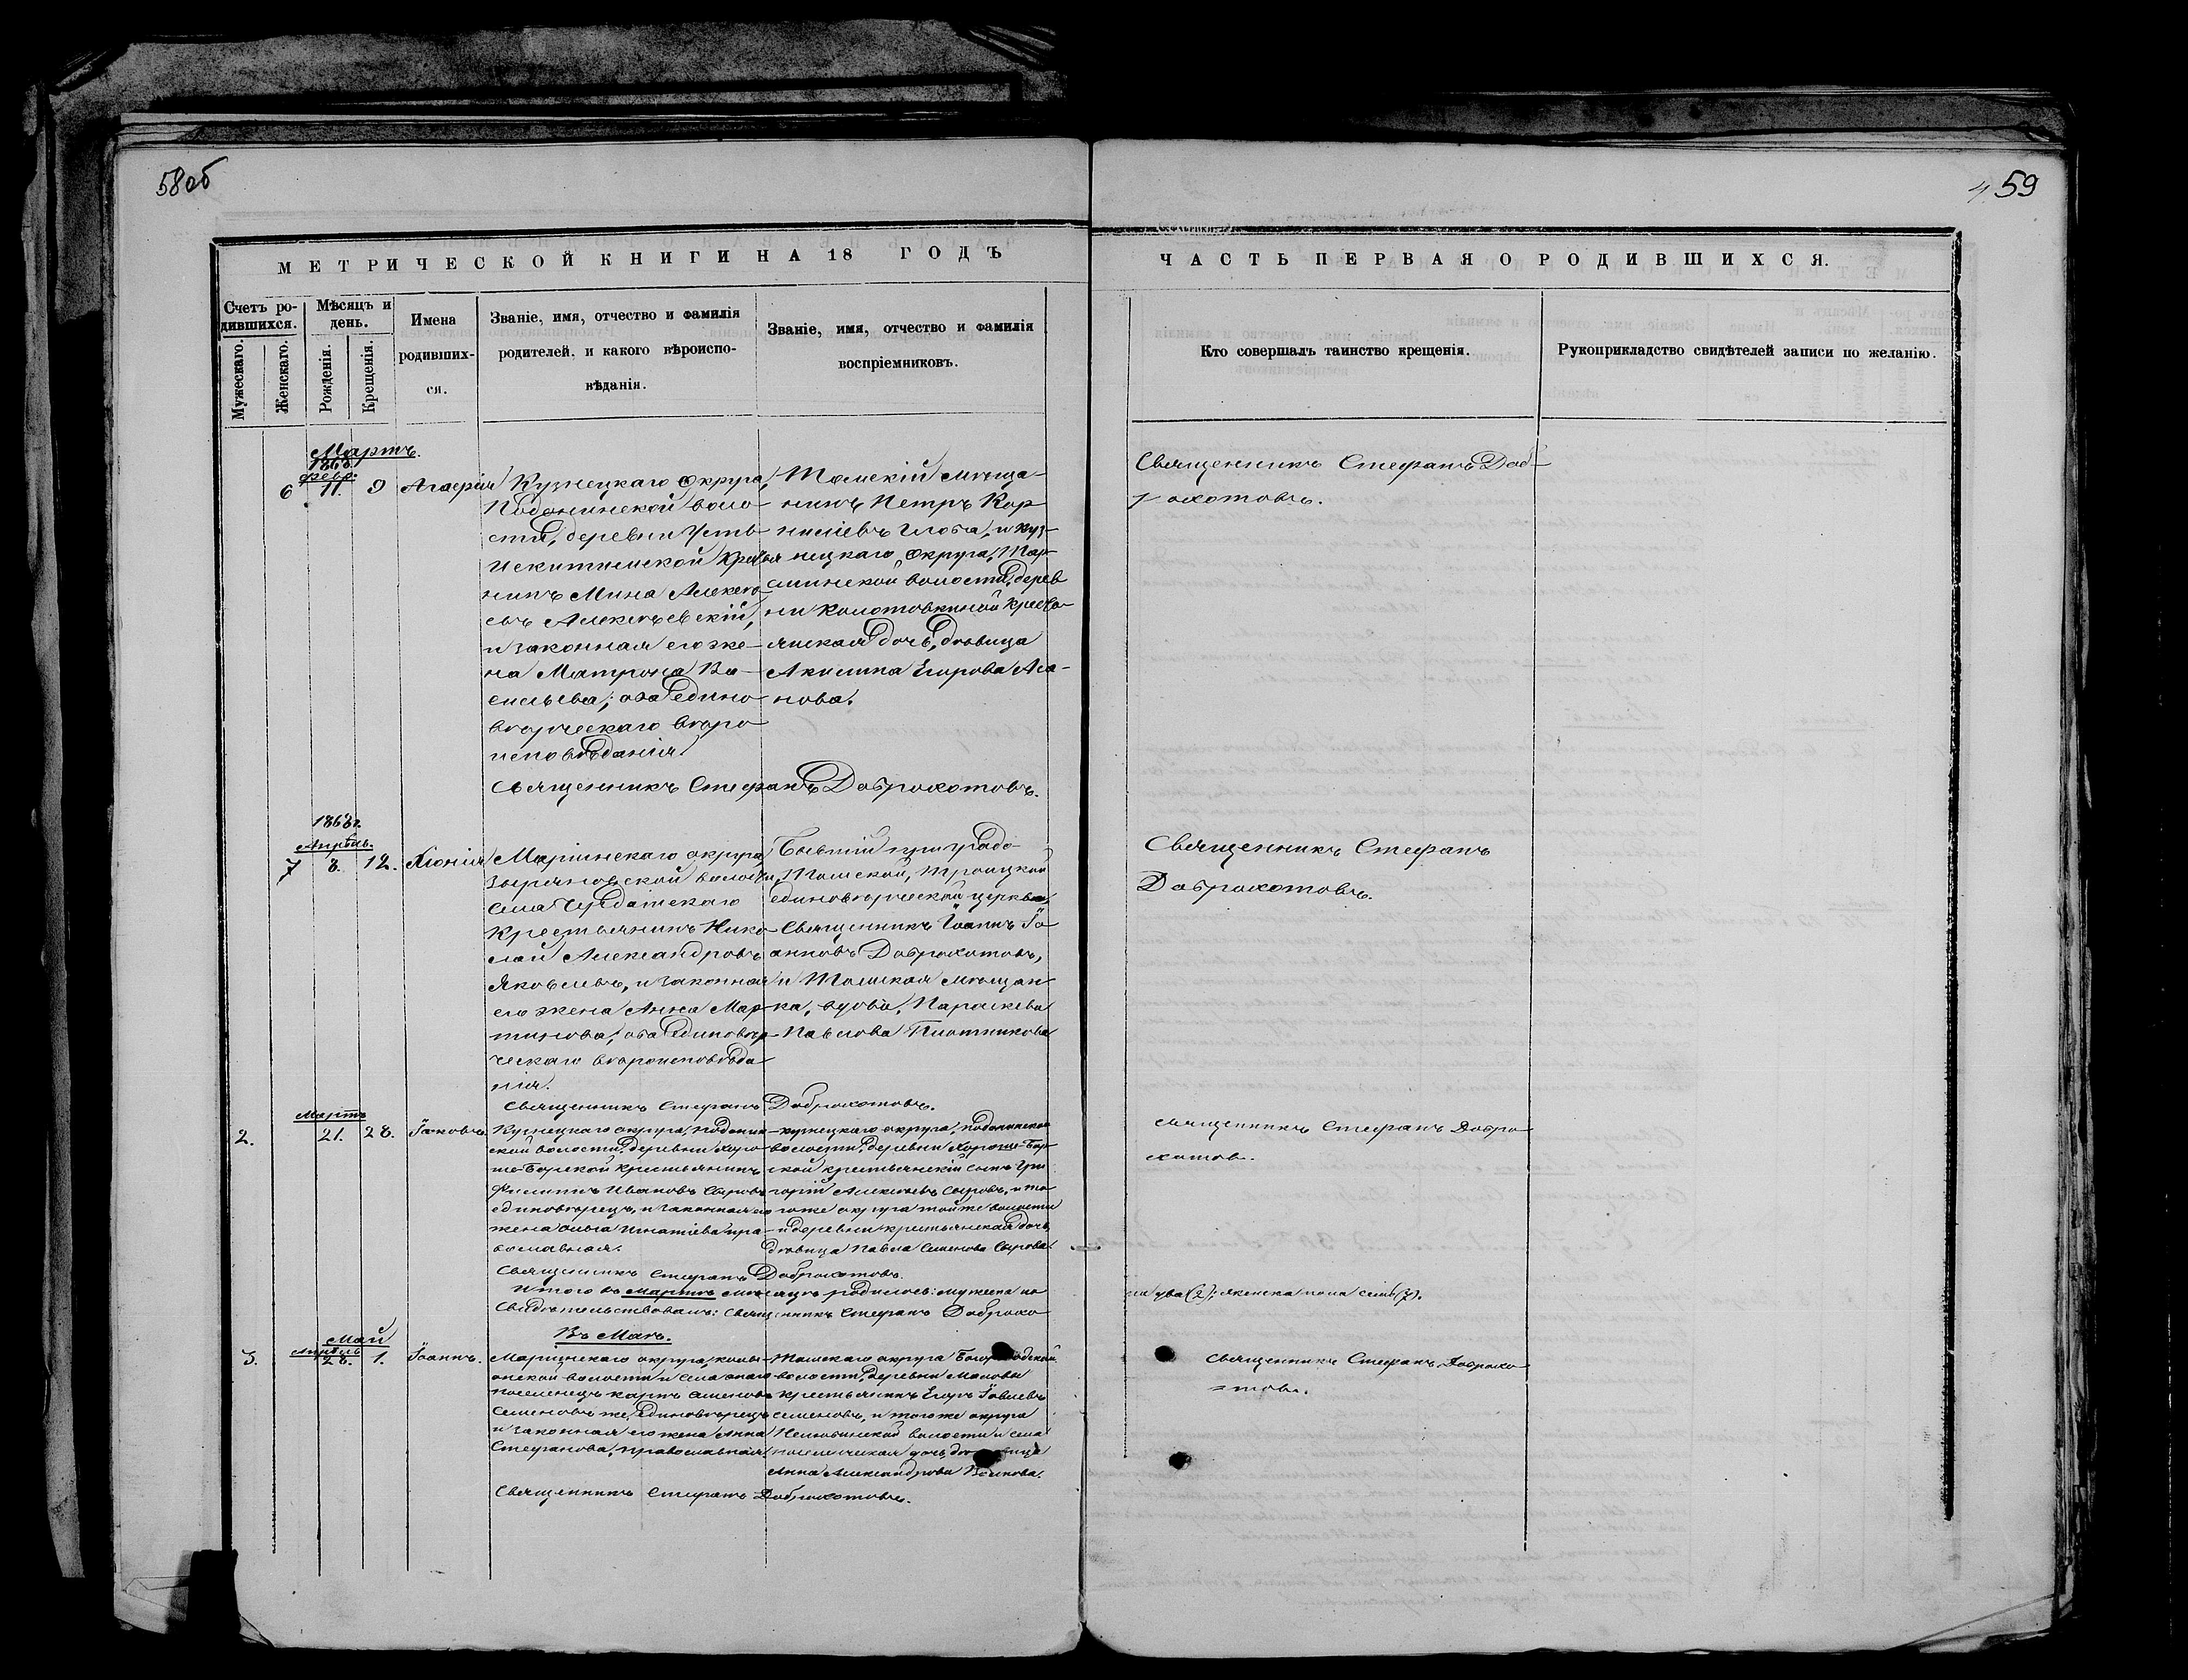 58об
4 59
МЕТРИЧЕСКОЙ КНИГИ НА 18 ГОДЪ
ЧАСТЬ ПЕРВАЯ О РОДИВШИХСЯ.
Счетъ ро-
дившихся.
Мужескаго.
Женскаго.
Мѣсяцъ и
день.
Рожденія.
Крещенія.
Имена
родивших-
ся.
Званіе, имя, отчество и фамилія
родителей, и какого вѣроиспо-
вѣданія.
Званіе, имя, отчество и фамилія
воспріемниковъ.
Кто совершалъ таинство крещенія.
Рукоприкладство свидѣтелей записи по желанію.
Мартъ.
1868.
Февр.
6 11. 9 Агафія
Кузнецкаго округа,
Подонинской воло-
сти, деревни Усть-
Искитимской крестья
нинъ Мина Алексѣ
евъ Алексѣевскій,
и законная его же-
на Матрона Ва-
сильева; оба едино
вѣрческаго вѣро
исповѣданія.
Томскій мѣща-
нинъ Петръ Кор
ниліевъ и Куз-
нецкаго округа,
волости, дерев
ни Колотовкиной кресть-
янская дочь, дѣвица
Акилина Егорова Ага-
нова.
Священникъ Стефанъ Доброхотовъ.
Священникъ Стефанъ Доб-
рохотовъ.
1868 г.
Апрѣль.
7 8. 12. Хіонія
Маріинскаго округа,
Зыряновской волости,
села Чердатскаго
крестьянинъ Нико
лай Александровъ
Яковлевъ, и законная
его жена Анна Мар
тинова, оба единовѣр
ческаго вѣроисповѣда
нія.
Бывшій при градо-
Томской, Троицкой
единовѣрческой церкви,
Священникъ Іоаннъ Іо
анновъ Доброхотовъ,
и Томская мѣщан
ка, вдова, Параскева
Павлова Плотникова
Священникъ Стефанъ Доброхотовъ.
Священникъ Стефанъ
Доброхотовъ.
Мартъ
2. 21. 28. Іаковъ.
Кузнецкаго округа, Подонин
ской волости, деревни Хоро
ше-Борской крестьянинъ
Филиппъ Ивановъ Сыровъ
единовѣрецъ, и законная его
жена Ольга Игнатіева пра
вославная.
Кузнецкаго округа, Подонинской
волости, деревни Хороше-Бор
ской крестьянскій сынъ Гри
горій Алексѣевъ Сыровъ, и то
гоже округа той же волости
и деревни крестьянская дочь,
дѣвица Павла Семенова Сырова.
Священникъ Стефанъ Доброхотовъ.
Священникъ Стефанъ Добро
хотов.
Итого въ Мартѣ мѣсяцѣ родилось: мужеска по
ла два (2); женска пола семь (7).
Свидѣтельствовалъ: священникъ Стефанъ Доброхо
Въ Маѣ.
Май
Апрѣль
3. 28. 1. Іоаннъ.
Маріинскаго округа,
волости и села
поселенецъ Карпъ Семеновъ
Семеновъ же, единовѣрецъ
и законная его жена Анна
Стефанова, православная.
Томскаго округа Богородской
волости, деревни
крестьянинъ Егоръ Іовлевъ
Семеновъ, и того же округа
Нелюбинской волости и села
поселенческая дочь, дѣвица
Анна Александрова
Священникъ Стефанъ Доброхотовъ.
Священникъ Стефанъ Доброхо
товъ.